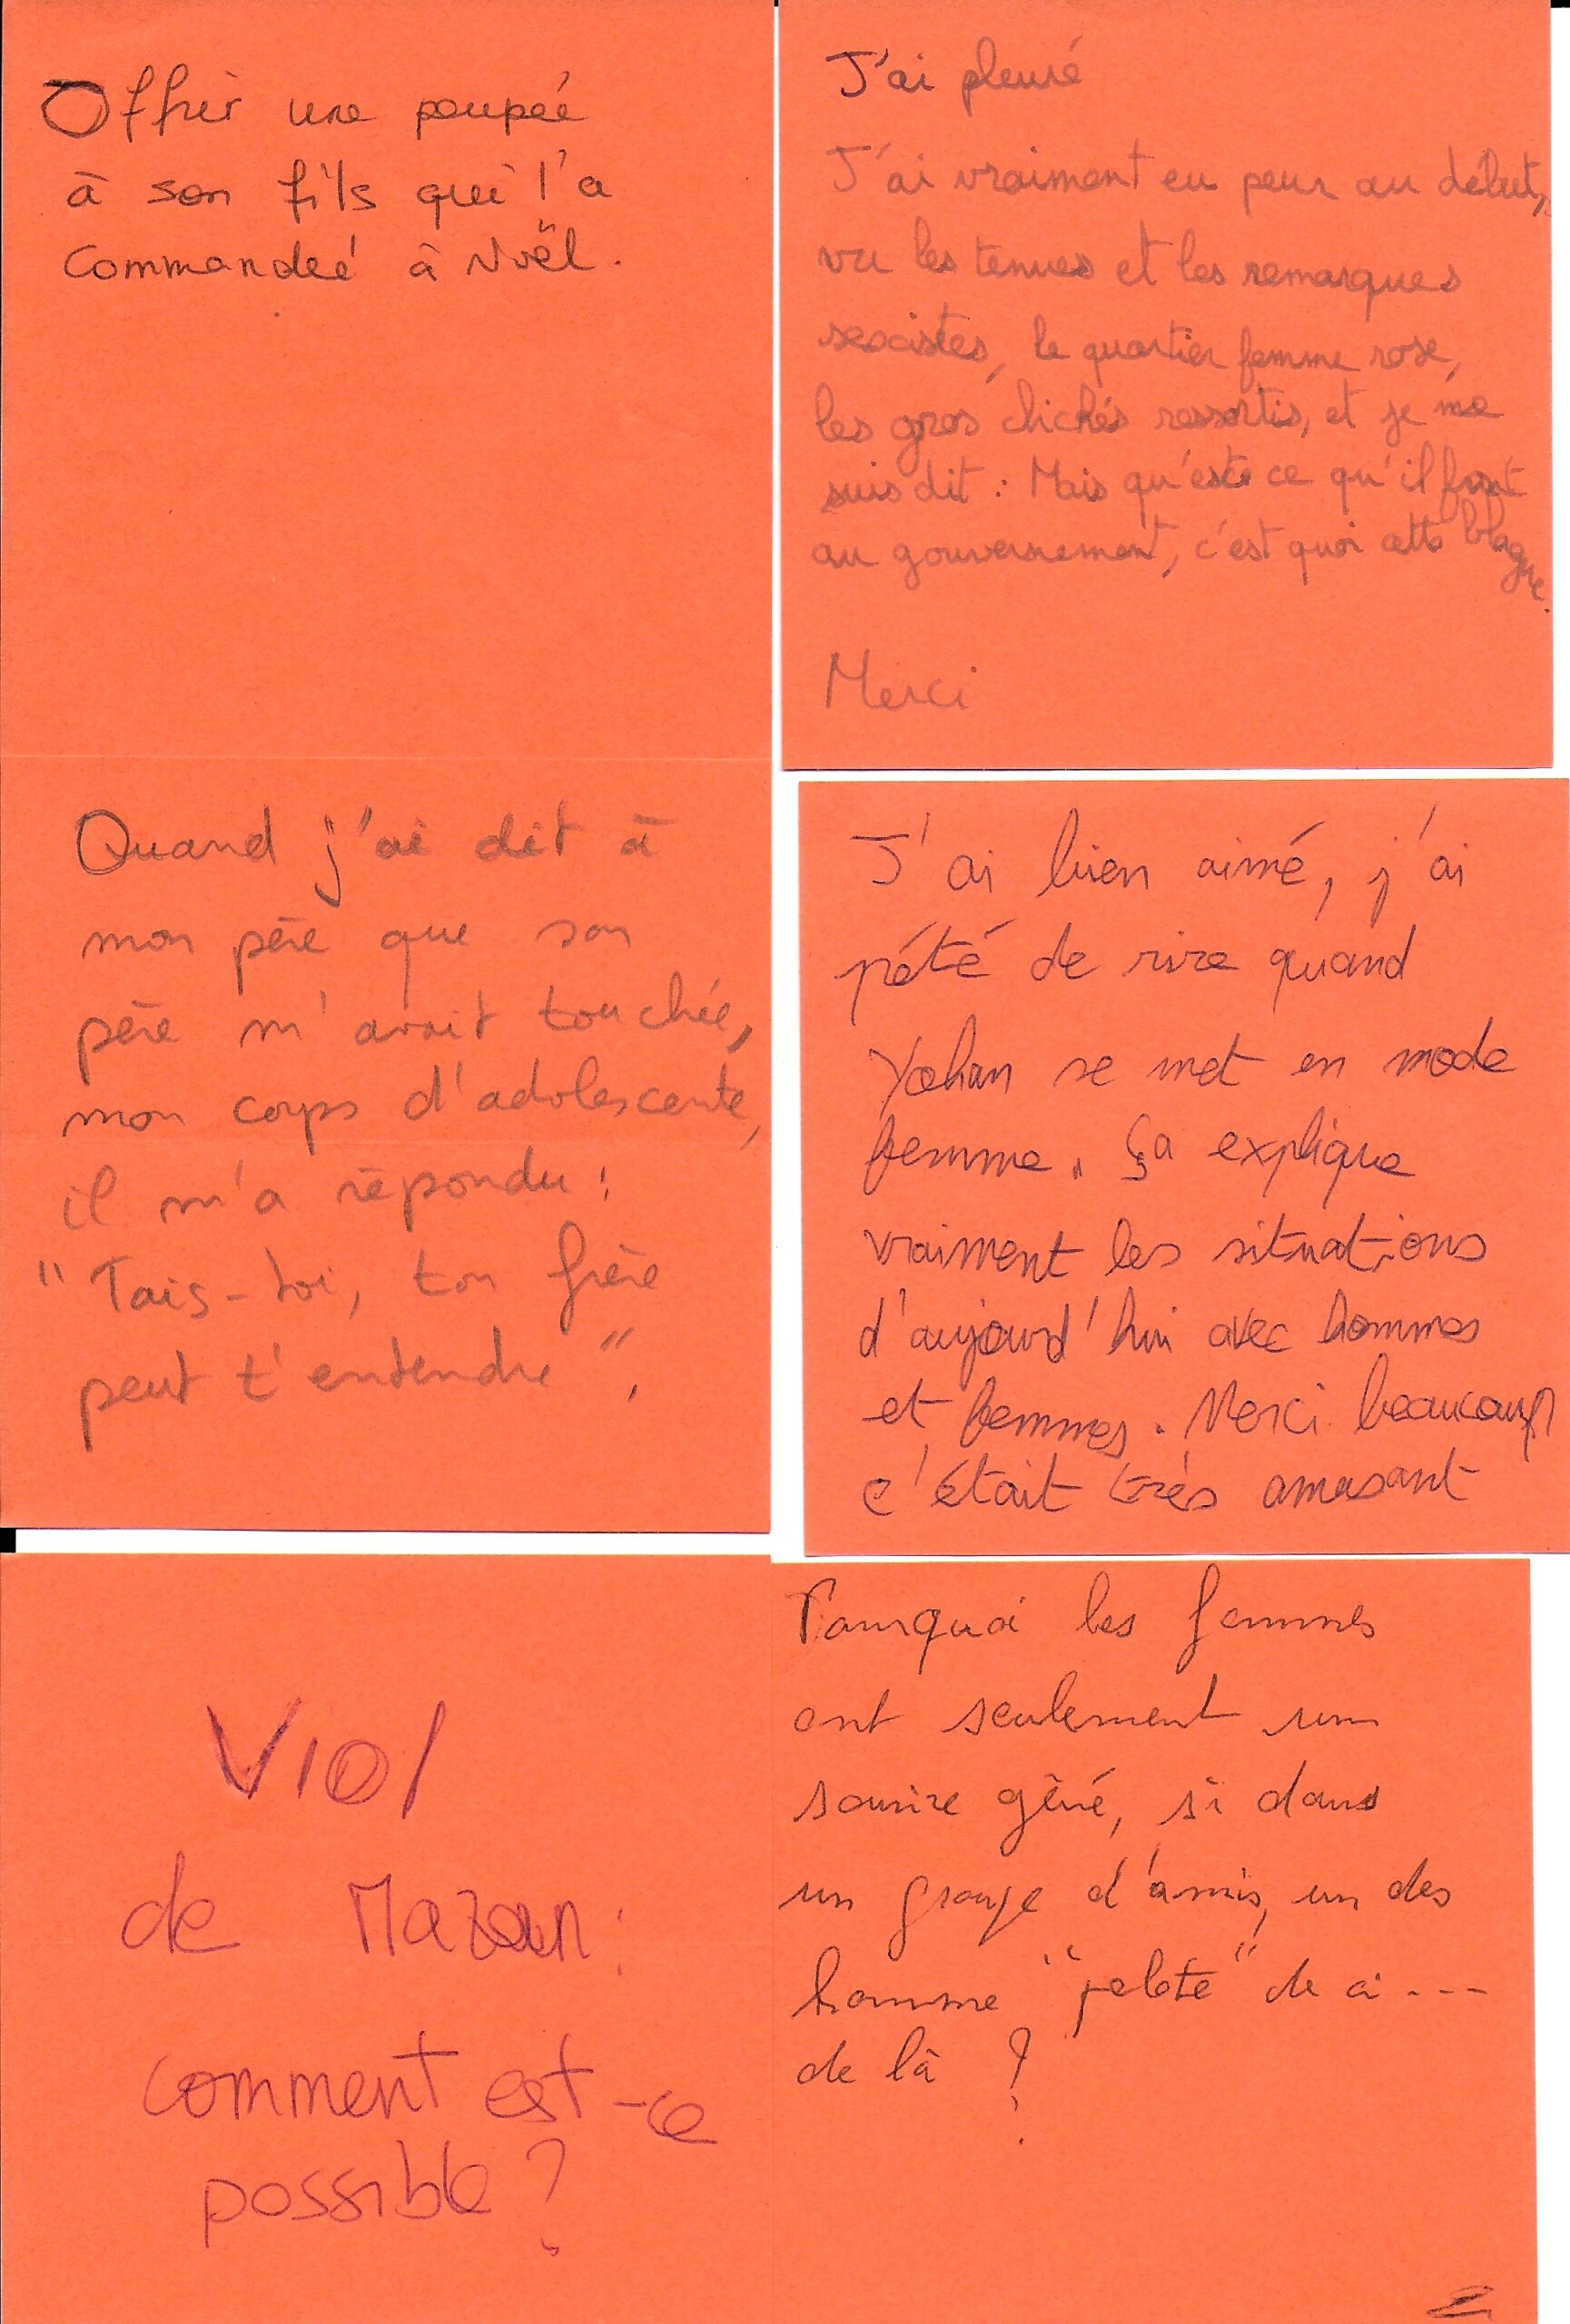 Offrir une poupée
à son fils qui l'a
commandé à Noël.
J'ai pleuré
J'ai vraiment eu peur au début,
vu les tenues et les remarques
sexistes, le quartier femme rose,
les gros clichés ressortis, et je me
suis dit : Mais qu'est ce qu'il font
au gouvernement, c'est quoi cette blague.
Merci
Quand j'ai dit à
mon père que son
père m'avait touchée,
mon corps d'adolescente,
il m'a répondu :
"Tais-toi, ton frère
peut t'entendre".
J'ai bien aimé, j'ai
pété de rire quand
Yohan se met en mode
femme. Ça explique
vraiment les situations
d'aujourd'hui avec hommes
et femmes. Merci beaucoup
c'était très amusant
Viol
de Mazan :
comment est-ce
possible ?
Pourquoi les femmes
ont seulement un
sourire gêné, si dans
un groupe d'amis, un des
homme "pelote" de ci ---
de là ?